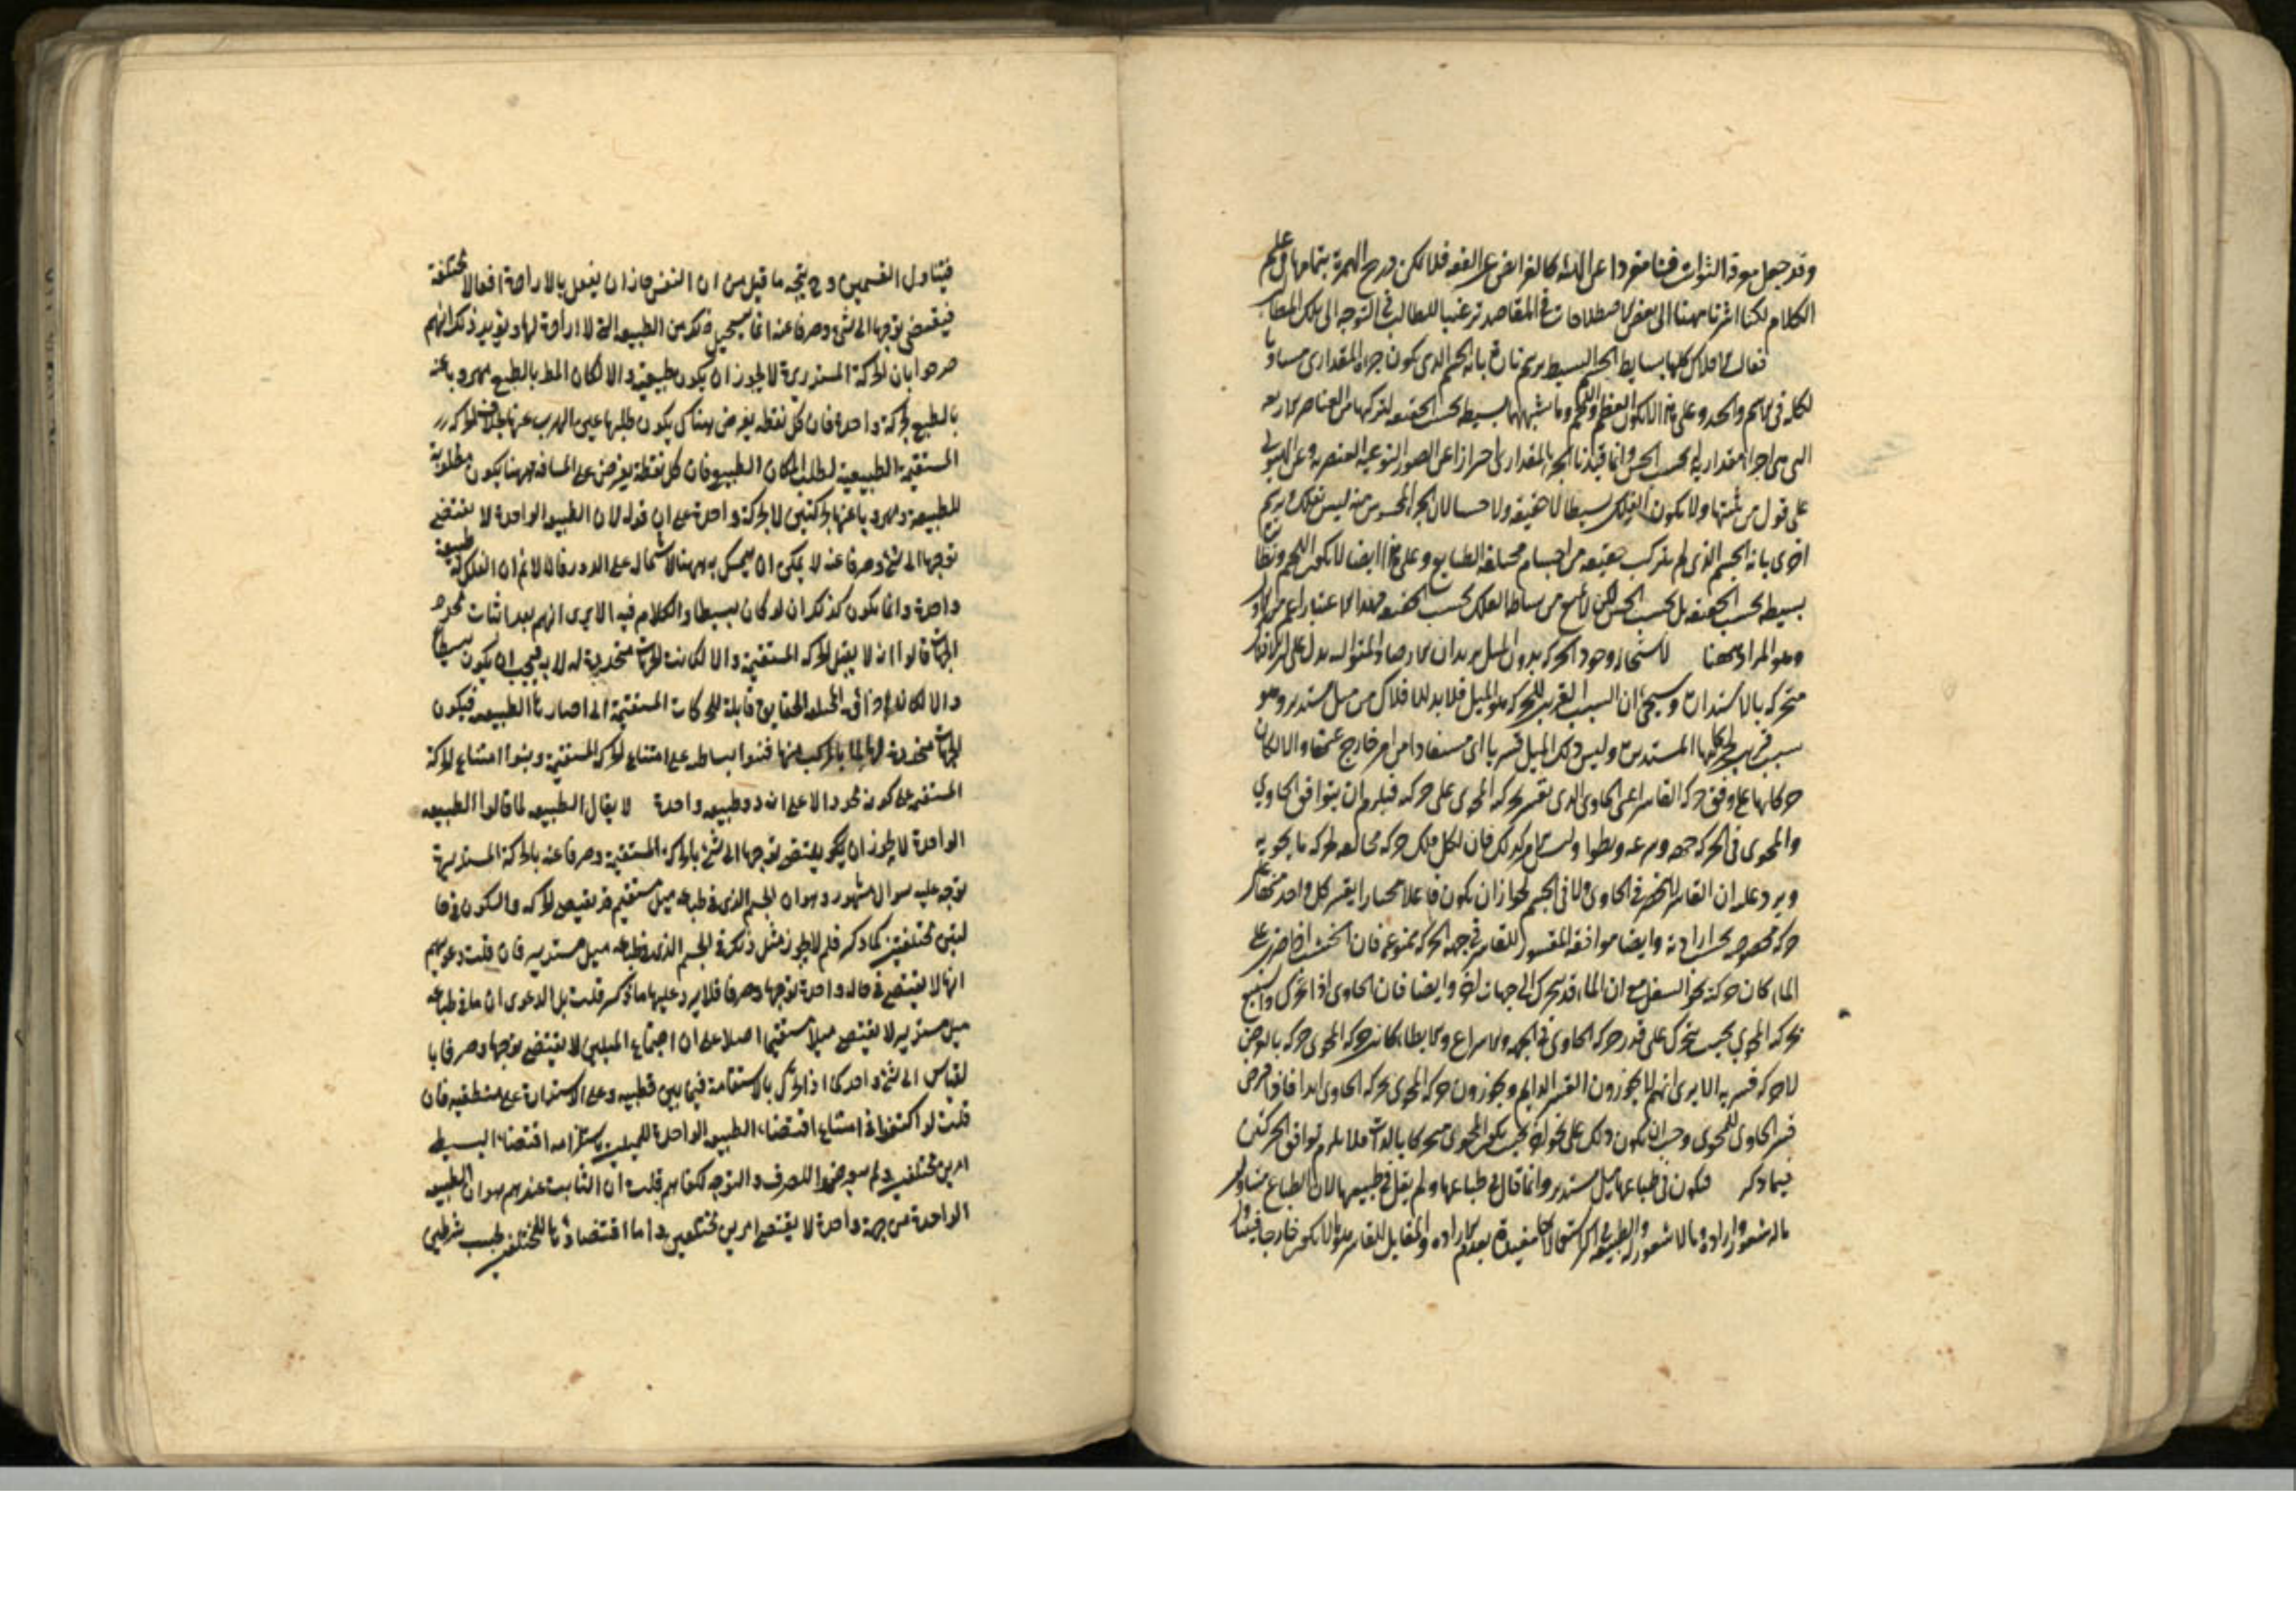 وقد جعل معرفة الثوابت فنا منفردا عن الهيئة كالفرائض عن الفقه فلما لم يكن درج الهمزة بتمامها في علم
الكلام لكنا اشرنا ههنا الى بعض الاصطلاحات في المقاصد ترغيبا للطالب في التوجه الى تلك المطالب
فقال الافلاك كلها بسايط الجسم البسيط يرسم تارة بانه الجسم الذي يكون جزؤه المقداري مساويا
لكله في الاسم والحد وعلى هذا لا يكون العظم واللحم وما يشبههما بسيطة بحسب الحقيقة لتركبها من العناصر الاربعة
التي هي اجزاء مقدارية لا بحسب الحس وانما قيدنا الجزء بالمقداري احترازا عن الصور النوعية العنصرية وعن الهيولى
على قول من يثبتها ولا يكون الفلك بسيطا لا حقيقة ولا حسا لان الجزء المحسوس منه ليس بفلك ويرسم
اخرى بانه الجسم الذي لم يتركب حقيقة من اجسام مختلفة الطبايع وعلى هذا ايضا لا يكون اللحم ونظائره
بسيطة بحسب الحقيقة بل بحسب الحس لكن لا مانع من بساطة الفلك بحسب الحقيقة فهذا الاعتبار اعم من الاول
وهو المراد ههنا لاستحالة وجود الحركة بدون الميل يريد ان الارصاد المتوالية يدل على ان الافلاك
متحركة بالاستدارة وسيجئ ان السبب القريب للحركة هو الميل فلا بد للافلاك من ميل مستدير وهو
سبب قريب لحركاتها المستديرة وليس ذلك الميل قسريا اى مستفادا من امر خارج عنها والا لكان
حركاتها على وفق حركة القاسر اعنى الحاوي الذي يقسر بحركته المحوى على حركته فيلزم ان يتوافق الحاوي
والمحوى في الحركة جهة وسرعة وبطؤا وليس الامر كذلك فان لكل فلك حركة مخالفة لحركة ما يحويه
ويرد عليه ان القاسر لا ينحصر في الحاوى ولا في الجسم لجواز ان يكون فاعلا مختارا يقسر كل واحد منها على
حركة مخصوصة بحسب ارادته وايضا موافقة المقسور للقاسر في جهة الحركة ممنوعة فان الخشب اذا ضرب على
الماء كان حركته نحو السفل مع ان الماء قد يتحرك الى جهات اخر وايضا فان الحاوى اذا تحرك واستتبع
تحركه المحوي بحيث يتحرك على قدر حركة الحاوى في الجهة والاسراع والابطاء كانت حركة المحوى حركة بالعرض
لا حركة قسرية الا يرى انهم لا يجوزون القسر الدايم ويجوزون حركة المحوى بحركة الحاوى ابدا فاذا فرض
قسر الحاوى للمحوى وجب ان يكون ذلك على نحو اخر بحيث يكون المحوى متحركا بالذات فلا يلزم توافق الحركتين
فيما ذكر فيكون في طباعها ميل مستدير وانما قال في طباعها ولم يقل في طبيعتها لان الطباع متناول
ماله شعور وارادة وما لا شعور له والطبيعة اكثر استعمالا مقيدة بعدم الارادة والمقابل للقاسر هو ما لا يكون خارجا فيتناول
فيتناول القسمين وح يتجه ما قيل من ان النفس جاز ان يفعل بالارادة افعالا مختلفة
فيقتضى توجها الى شئ وصرفا عنه انما يستحيل ذلك من الطبيعة التي لا ارادة لها ويؤيد ذلك انهم
صرحوا بان الحركة المستديرة لا يجوز ان يكون طبيعية والا لكان المط بالطبع مهروبا عنه
بالطبع بحركة واحدة فان كل نقطة يفرض هناك يكون طلبها عين الهرب عنها بخلاف الحركة
المستقيمة الطبيعية لطلب المكان الطبيعي فان كل نقطة يفرض على المسافة ههنا يكون مطلوبة
للطبيعة ومهروبا عنها بحركتين لا بحركة واحدة على ان قوله لان الطبيعة الواحدة لا يقتضى
توجها الى شئ وصرفا عنه لا يمكن ان يتمسك به ههنا لاشتماله على الدور فانا لا نم ان الفلك له طبيعة
واحدة وانما يكون كذلك ان لو كان بسيطا والكلام فيه الا يرى انهم بعد اثبات محدد
الجهات قالوا انه لا يقبل الحركة المستقيمة والا لكانت الجهات متحددة له لا به فيجب ان يكون بسيطا
والا لكان اجزاؤه المختلفة الحقايق قابلة للحركات المستقيمة الى احيازها الطبيعية فيكون
الجهات متحددة لها لا بما يتركب منها فبنوا بساطته على امتناع الحركة المستقيمة وبنوا امتناع الحركة
المستقيمة على كونه محددا لا على انه ذو طبيعة واحدة لا يقال الطبيعة لما قالوا الطبيعة
الواحدة لا يجوز ان يكون يقتضى توجها الى شئ بالحركة المستقيمة وصرفا عنه بالحركة المستديرة
توجه عليه سوال مشهور وهو ان الجسم الذي في طباعه ميل مستقيم قد يقتضى الحركة والسكون في حا
لتين مختلفتين كما ذكر فلم لا يجوز مثل ذلك في الجسم الذي في طباعه ميل مستدير فان قلت دعويهم
انها لا يقتضى في حالة واحدة توجها وصرفا فلا يرد عليها ما ذكر قلت بل الدعوى ان ما في طباعه
ميل مستدير لا يقتضى ميلا مستقيما اصلا على ان اجتماع الميلين لا يقتضى توجها وصرفا با
لقياس الى شئ واحد كما اذا تحرك بالاستقامة فيما بين قطبيه وعلى الاستدارة على منطقته فان
قلت لو اكتفوا في امتناع اقتضاء الطبيعة الواحدة للميلين باستلزامه اقتضاء البسيط
امرين مختلفين ولم يتعرضوا للصرف والتوجه لكفاهم قلت ان الثابت عندهم هو ان الطبيعة
الواحدة من جهة واحدة لا يقتضى امرين مختلفين واما اقتضاؤها للمختلفين بحسب شرطين